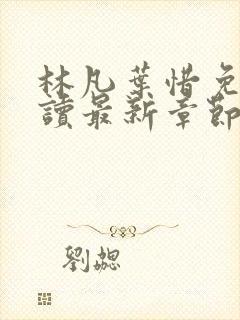 林凡葉惜免
讀最新章節
劉勰